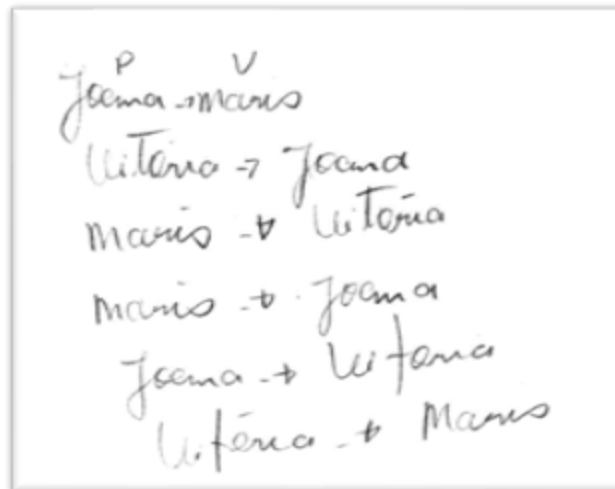 P V
Joana → Maris
Vitória → Joana
Maris → Vitória
Maris → Joana
Joana → Vitoria
Vitória → Maris